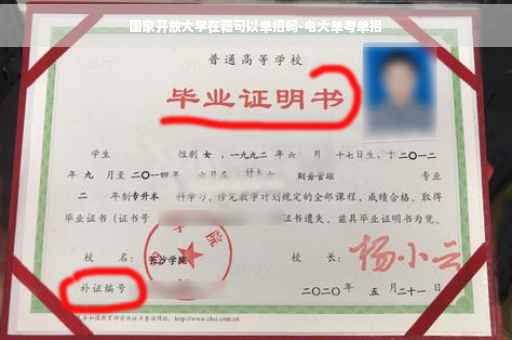 国家开放大学在籍可以单招吗-电大单考单招
普通高等学校
毕业证明书
学生 性别 女 ，一九九二 年 六 月 十七日生，于 二〇一二
年 九 月至 二〇一四 年 六月在 财务管理 专业
二 年制 专升本 科学习，修完教学计划规定的全部课程，成绩合格，取得
毕业证书（证书号 证书遗失，兹具毕业证明书为凭。
校 名： 长沙学院 校 长： 杨小云
补证编号 二〇二〇年 五 月 二十一 日
http://www.chsi.com.cn